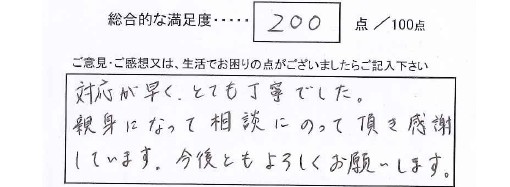 総合的な満足度・・・・・ 200 点 ／100点
ご意見・ご感想又は、生活でお困りの点がございましたらご記入下さい
対応が早く、とても丁寧でした。
親身になって相談にのって頂き感謝
しています。今後ともよろしくお願いします。